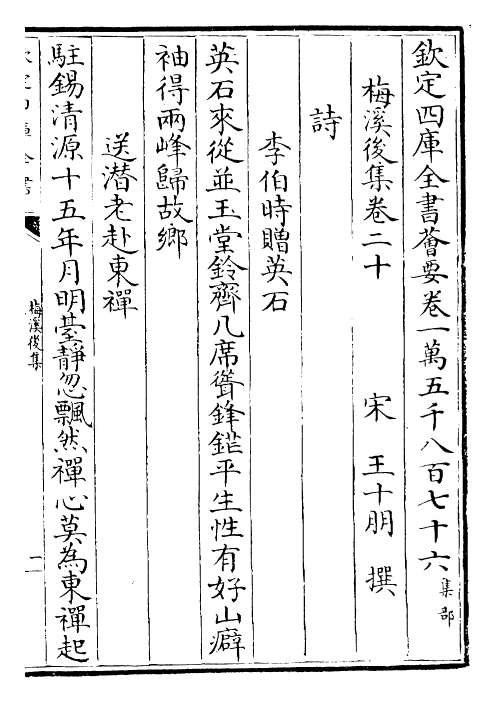 欽定四庫全書薈要卷一萬五千八百七十六 集部
梅溪後集卷二十 宋 王十朋 撰
詩
李伯時贈英石
英石來從並玉堂鈴齊几席聳鋒鋩平生性有好山癖
袖得兩峰歸故鄉
送潛老赴東禪
駐錫清源十五年月明臺靜忽飄然禪心莫為東禪起
梅溪後集
一